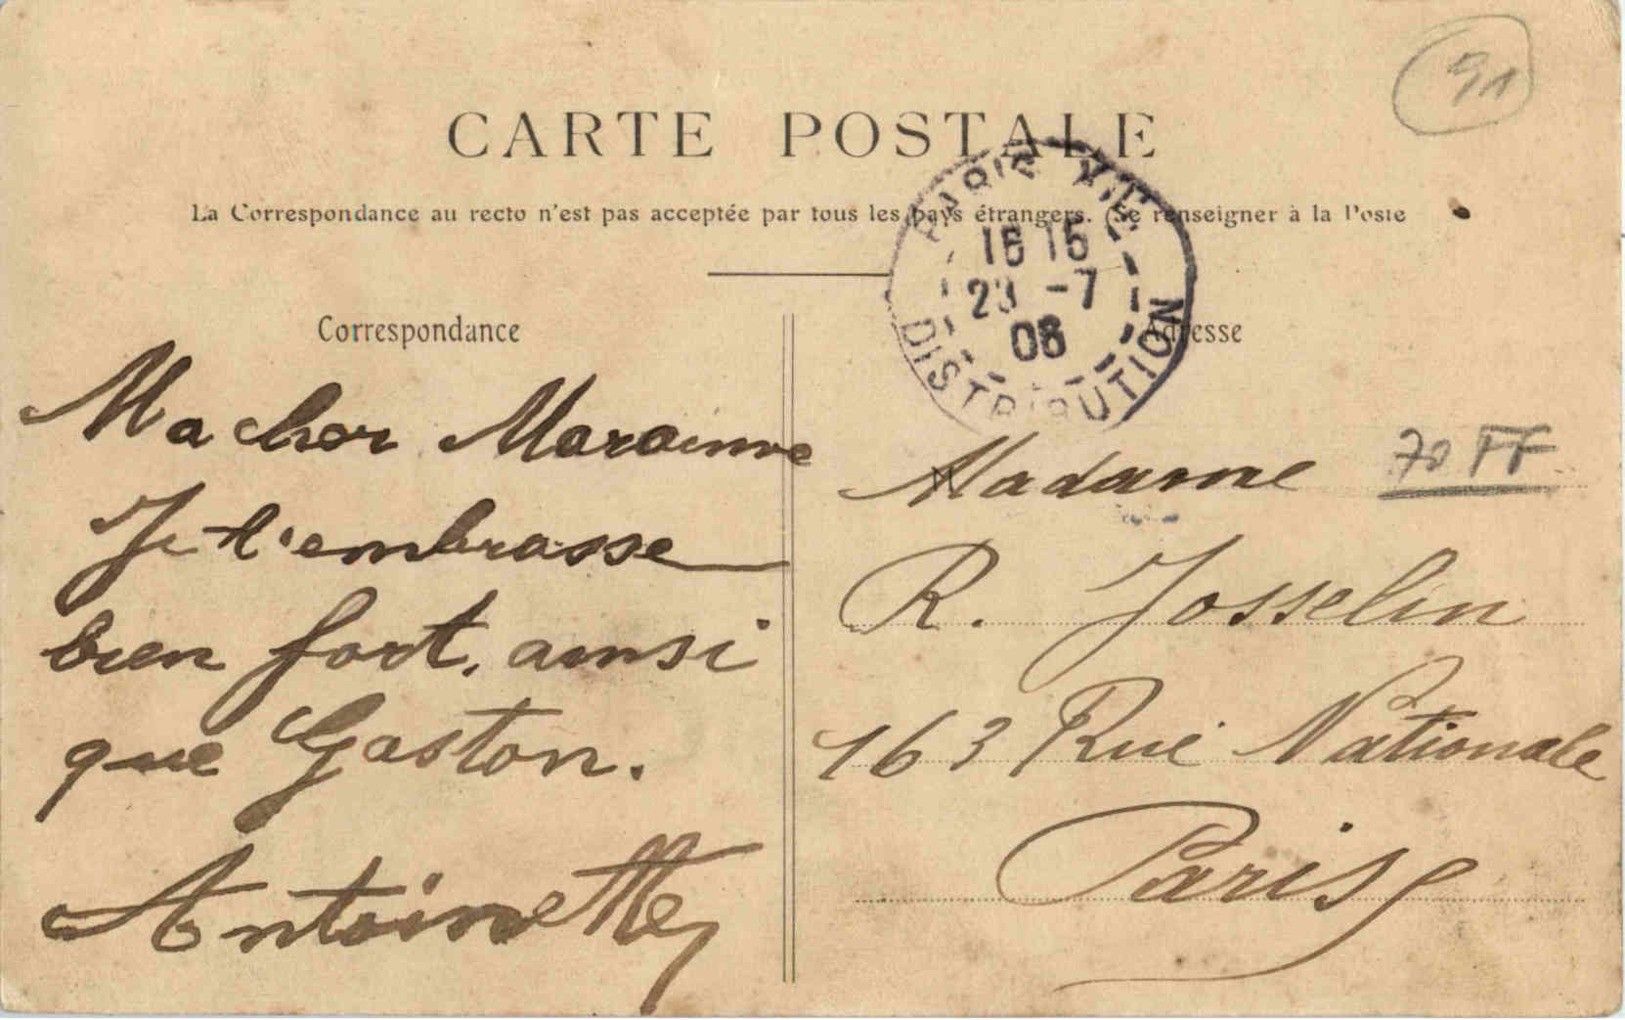 91
CARTE POSTALE
La Correspondance au recto n'est pas acceptée par tous les pays étrangers. (Se renseigner à la Poste
PARIS
16 15
23 -7
08
DISTRIBUTION
Correspondance
Adresse
Ma cher Marainne
Je t'embrasse
bien fort, ainsi
que Gaston.
Antoinette
Madame
70 FF
R. Josselin
163 Rue Nationale
Paris